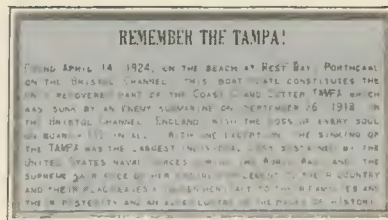 REMEMBER THE TAMPA!
FOUND APRIL 14 1924, ON THE BEACH AT REST BAY, PORTHCAWL
ON THE BRISTOL CHANNEL THIS BOAT CONSTITUTES THE
RECOVERED PART OF THE COAST GUARD CUTTER TAMPA WHICH
WAS SUNK BY AN ENEMY SUBMARINE ON SEPTEMBER 26 1918 IN
THE BRISTOL CHANNEL, ENGLAND WITH THE LOSS OF EVERY SOUL
ON BOARD IN ALL WITH ONE EXCEPTION THE SINKING OF
THE TAMPA WAS THE LARGEST INDIVIDUAL LOSS SUSTAINED BY THE
UNITED STATES NAVAL FORCES THE WORLD WAR AND THE
SUPREME SACRIFICE OF HER ENTIRE COUNTRY
AND THEIR FLAG LEAVES
POSTERITY AND AN IN THE PAGES OF HISTORY